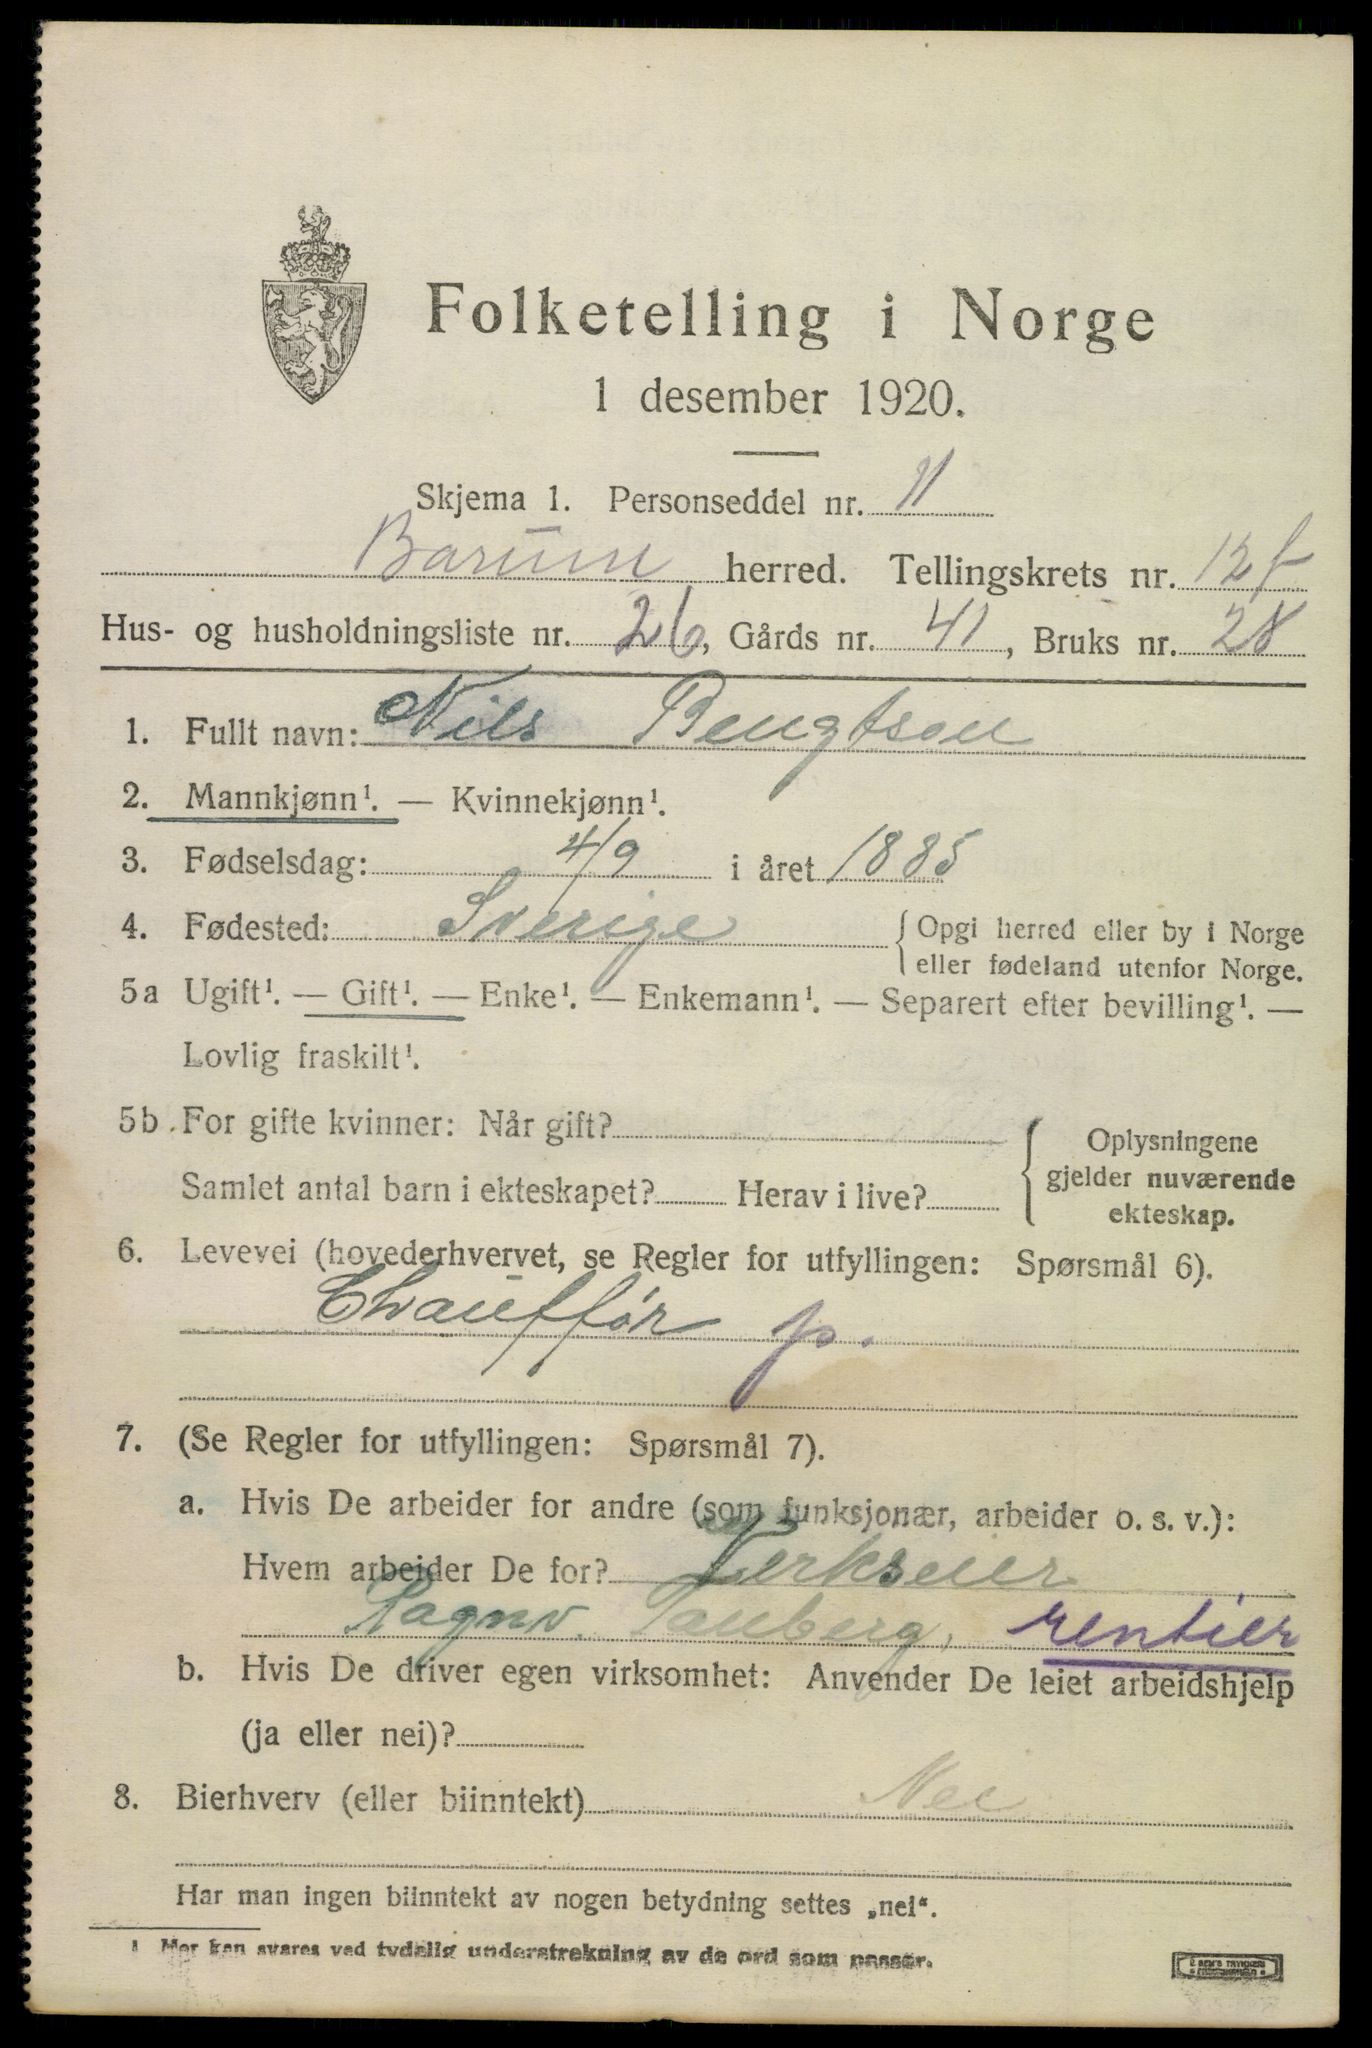 Folketelling i Norge
1 desember 1920.
Skjema 1. Personseddel nr. 11
Bærum herred. Tellingskrets nr. 12f
Hus- og husholdningsliste nr. 26, Gårds nr. 41, Bruks nr. 28
1. Fullt navn: Nils Bengtson
2. Mannkjønn¹. — Kvinnekjønn¹.
3. Fødselsdag: 4/9 i året 1885
4. Fødested: Sverige { Opgi herred eller by i Norge
eller fødeland utenfor Norge.
5a Ugift¹. — Gift¹. — Enke¹. — Enkemann¹. — Separert efter bevilling¹. —
Lovlig fraskilt¹.
5b For gifte kvinner: Når gift?
Samlet antal barn i ekteskapet? Herav i live?
{ Oplysningene
gjelder nuværende
ekteskap.
6. Levevei (hovederhvervet, se Regler for utfyllingen: Spørsmål 6).
Chauffør p.
7. (Se Regler for utfyllingen: Spørsmål 7).
a. Hvis De arbeider for andre (som funksjonær, arbeider o. s. v.):
Hvem arbeider De for? Verkseier
Ragnv. Tauberg, rentier
b. Hvis De driver egen virksomhet: Anvender De leiet arbeidshjelp
(ja eller nei)?
8. Bierhverv (eller biinntekt) Nei
Har man ingen biinntekt av nogen betydning settes „nei“.
1 Mer kan svares ved tydelig understrekning av de ord som passer.